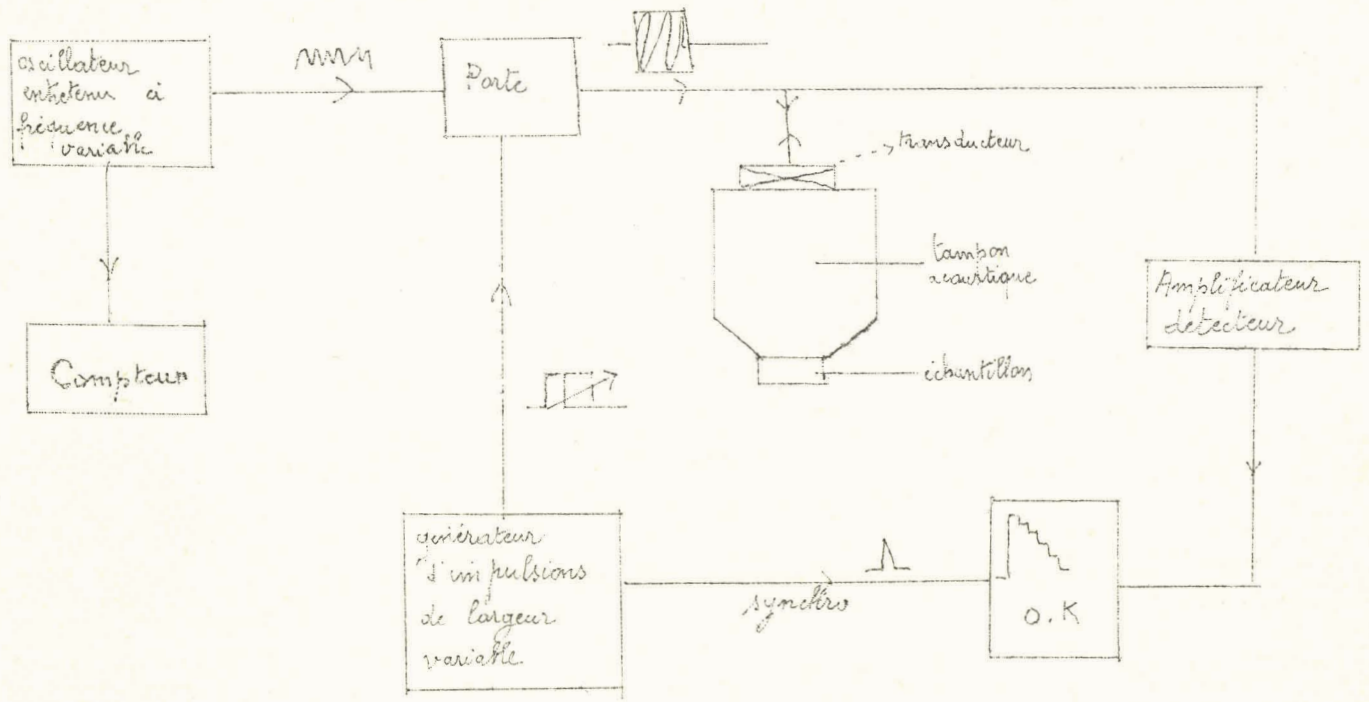 oscillateur
entretenu à
fréquence
variable
Porte
transducteur
tampon
acoustique
échantillon
Amplificateur
détecteur
Compteur
générateur
d'impulsions
de largeur
variable
synchro
O.K